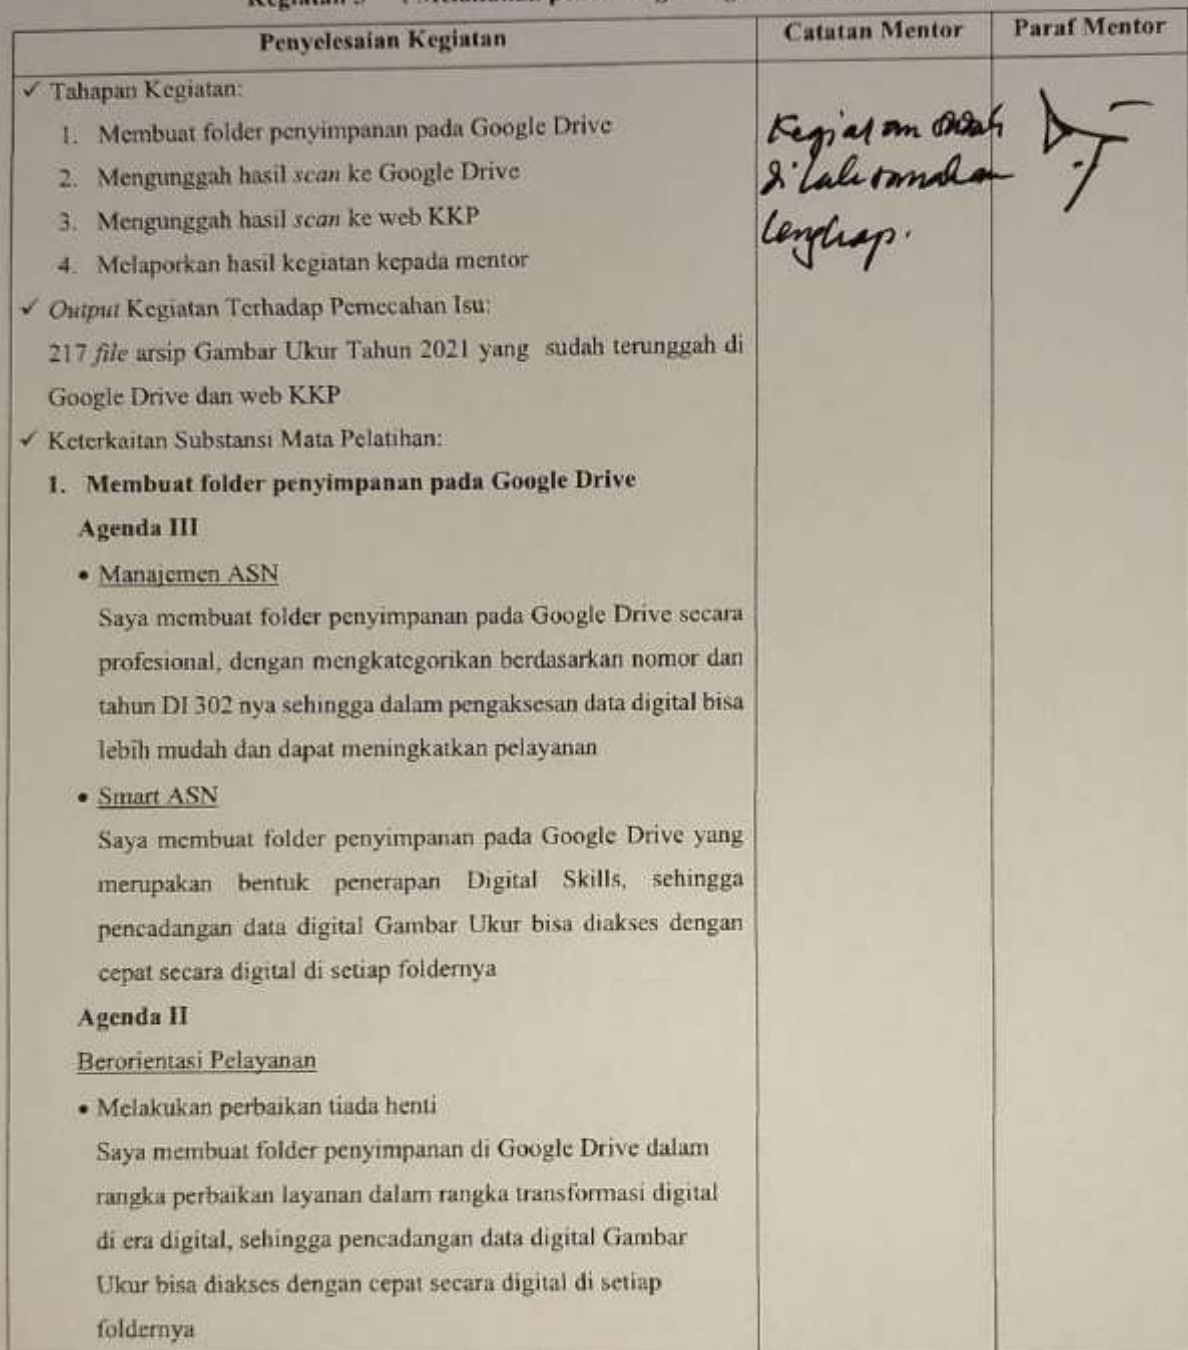 Penyelesaian Kegiatan
Catatan Mentor
Paraf Mentor
✓ Tahapan Kegiatan:
1. Membuat folder penyimpanan pada Google Drive
2. Mengunggah hasil scan ke Google Drive
3. Mengunggah hasil scan ke web KKP
4. Melaporkan hasil kegiatan kepada mentor
✓ Output Kegiatan Terhadap Pemecahan Isu:
217 file arsip Gambar Ukur Tahun 2021 yang sudah terunggah di
Google Drive dan web KKP
✓ Keterkaitan Substansi Mata Pelatihan:
1. Membuat folder penyimpanan pada Google Drive
Agenda III
• Manajemen ASN
Saya membuat folder penyimpanan pada Google Drive secara
profesional, dengan mengkategorikan berdasarkan nomor dan
tahun DI 302 nya sehingga dalam pengaksesan data digital bisa
lebih mudah dan dapat meningkatkan pelayanan
• Smart ASN
Saya membuat folder penyimpanan pada Google Drive yang
merupakan bentuk penerapan Digital Skills, sehingga
pencadangan data digital Gambar Ukur bisa diakses dengan
cepat secara digital di setiap foldernya
Agenda II
Berorientasi Pelayanan
• Melakukan perbaikan tiada henti
Saya membuat folder penyimpanan di Google Drive dalam
rangka perbaikan layanan dalam rangka transformasi digital
di era digital, sehingga pencadangan data digital Gambar
Ukur bisa diakses dengan cepat secara digital di setiap
foldernya
Kegiatan sudah
dilaksanakan
lengkap.